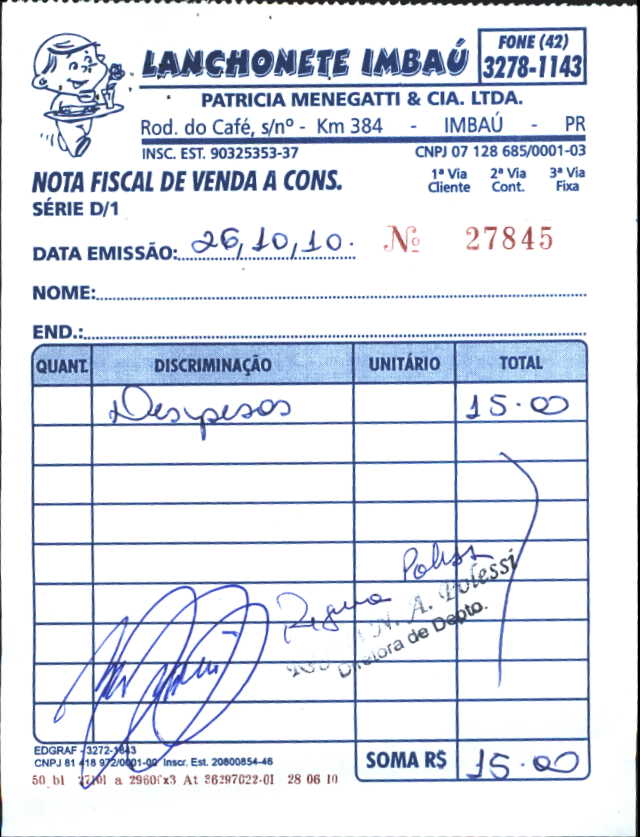 LANCHONETE IMBAÚ
FONE (42)
3278-1143
PATRICIA MENEGATTI & CIA. LTDA.
Rod. do Café, s/nº - Km 384 - IMBAÚ - PR
INSC. EST. 90325353-37 CNPJ 07 128 685/0001-03
NOTA FISCAL DE VENDA A CONS.
1ª Via Cliente 2ª Via Cont. 3ª Via Fixa
SÉRIE D/1
DATA EMISSÃO: 26,10,10. Nº 27845
NOME:
END.:
QUANT. DISCRIMINAÇÃO UNITÁRIO TOTAL
Despesas 15.00
Regina
N. A.
Diretora de Depto.
EDGRAF - 3272-1643
CNPJ 81 418 972/0001-00 Inscr. Est. 20800854-46
50 bl a 29600x3 At 36297022-01 28 06 10
SOMA R$ 15.00